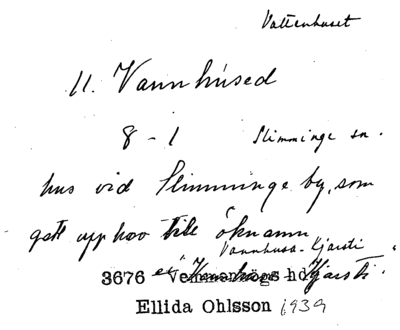 Vattenhuset
11. Vannhúsed
8 - 1 Slimminge sn.
hus vid Slimminge by, som
gett upphov till öknamn
Vannhusa-Kjersti
3676 Vemmenhögs hd Kjersti.
Ellida Ohlsson 1939